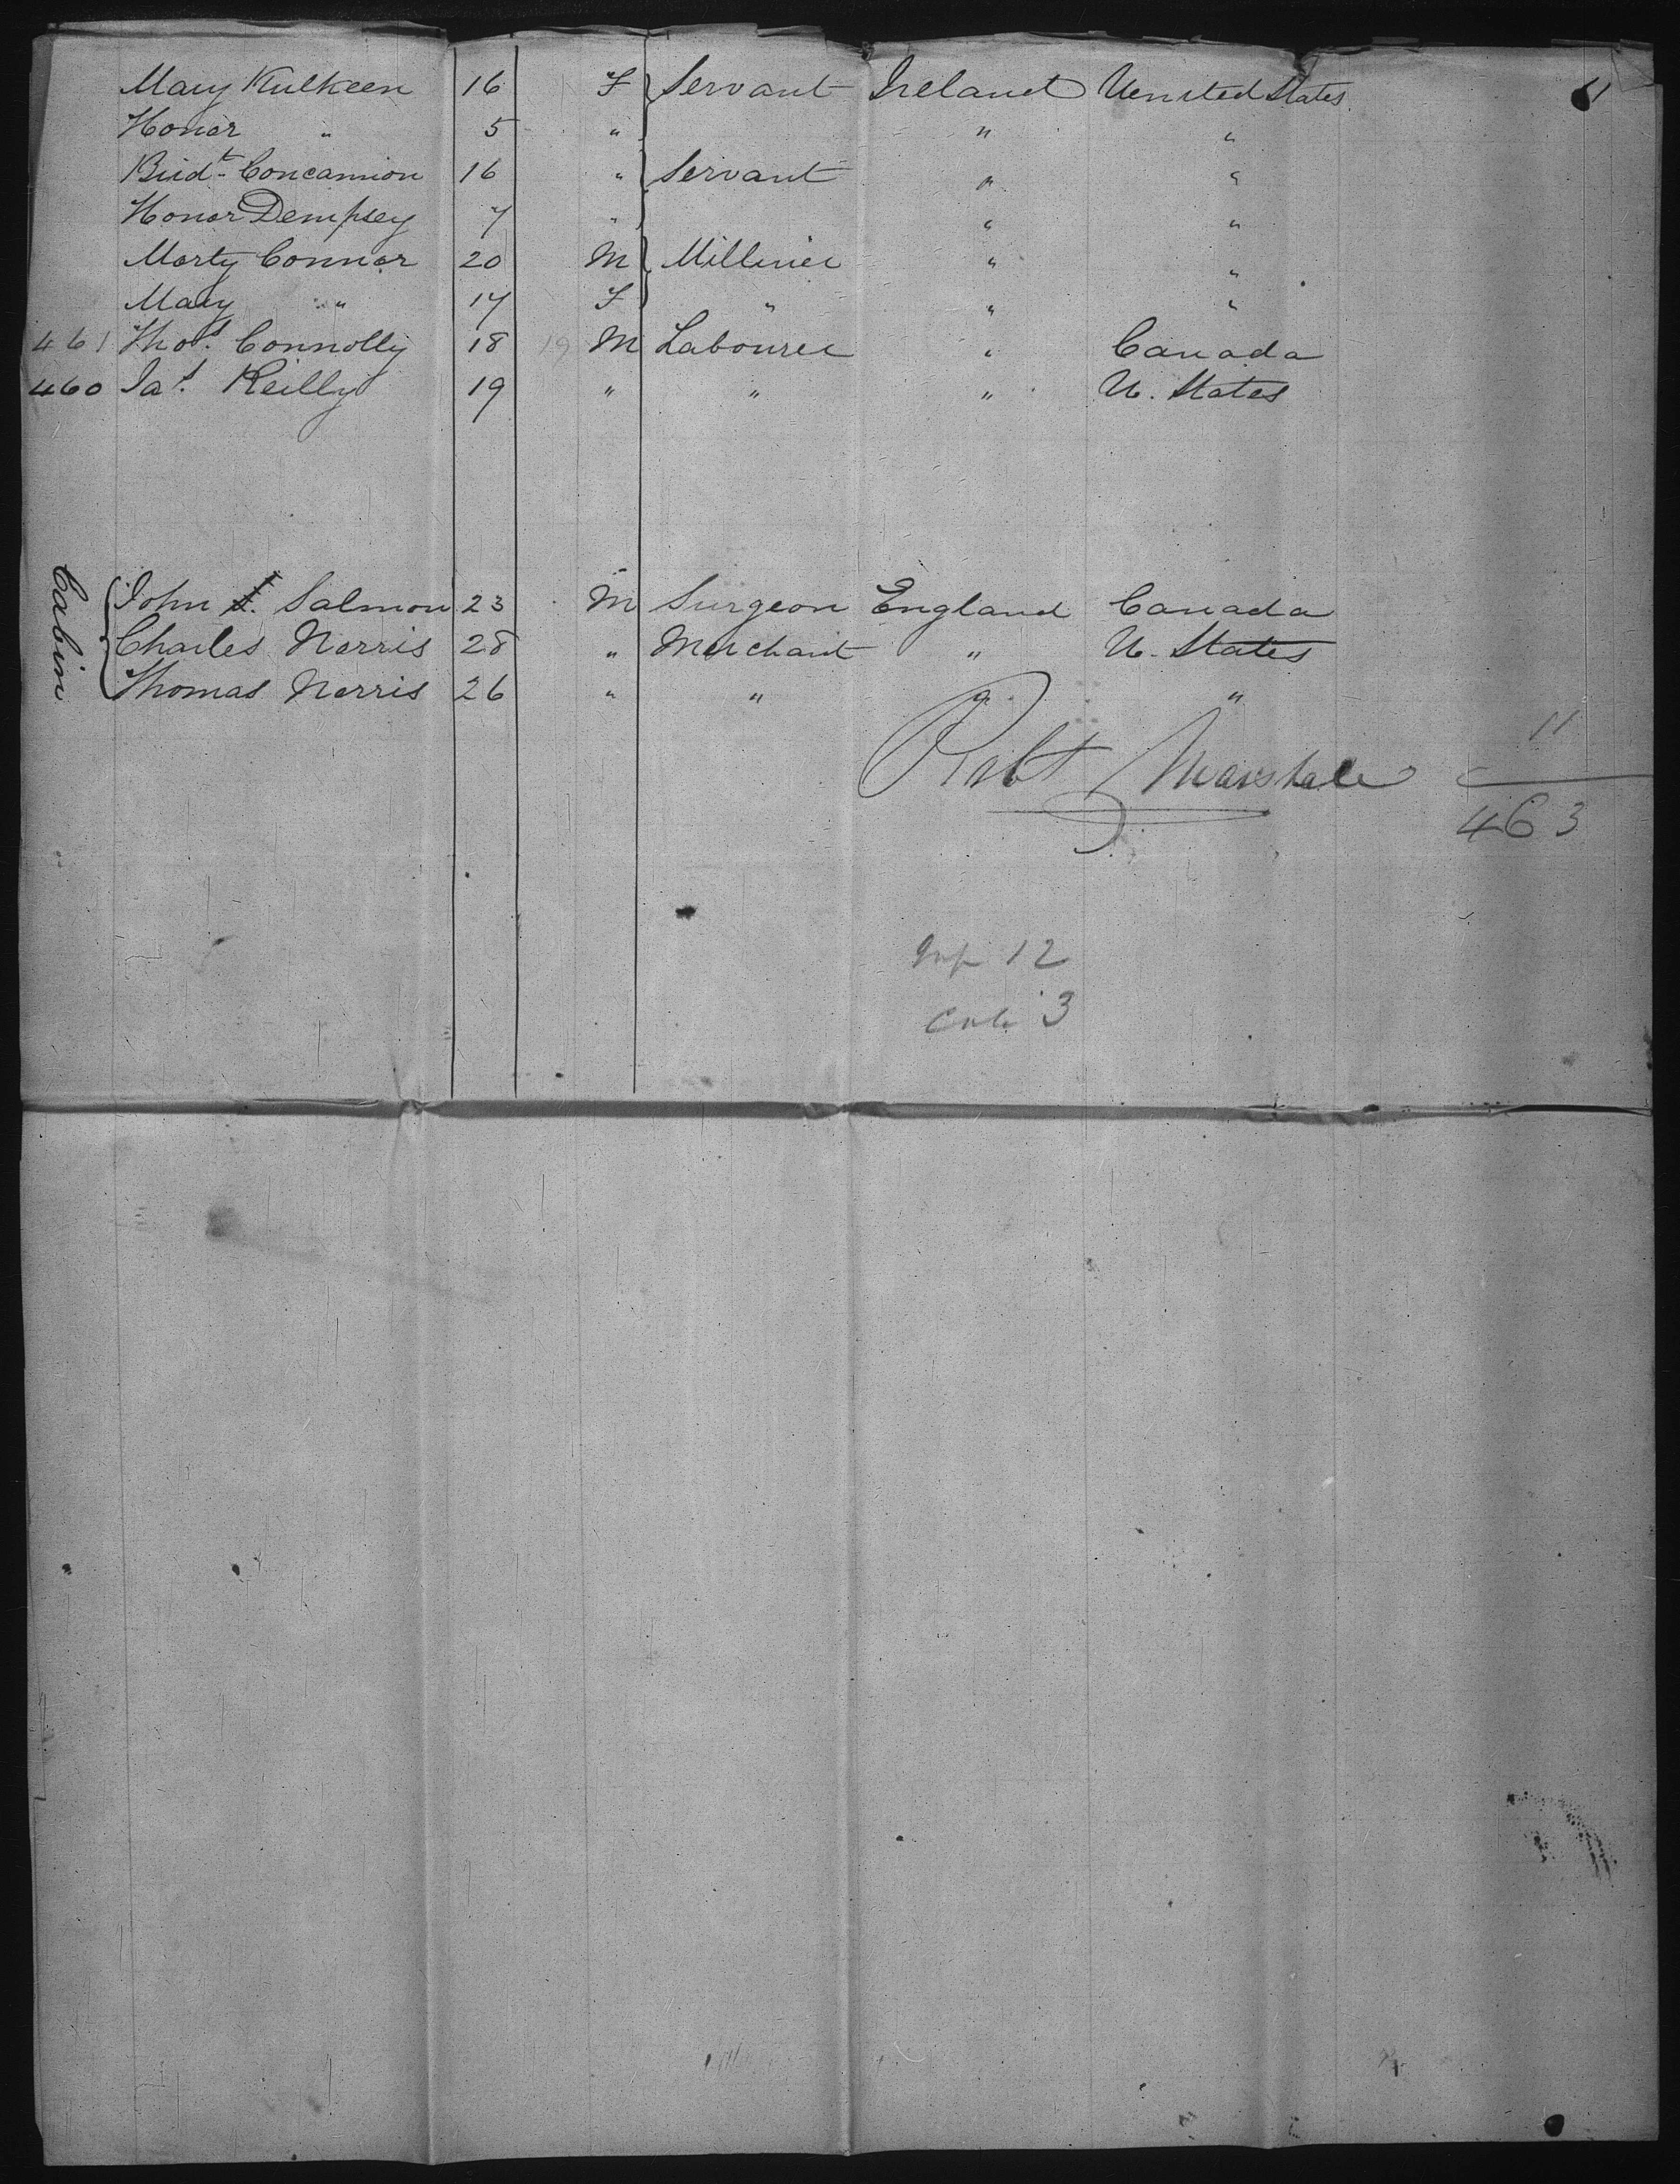 Mary Kulkeen 16 F Servant Ireland United States 11
Honor " 5 " " "
Bridt Concannon 16 " Servant " "
Honor Dempsey 7 " " "
Marty Connor 20 M Milliner " "
Mary " 17 F " " "
461 Thos. Connolly 18 19 M Labourer " Canada
460 Jas. Reilly 19 " " " U. States
Cabin
John S. Salmon 23 M Surgeon England Canada
Charles Norris 28 " Merchant " U. States
Thomas Norris 26 " " " "
Robt Marshall
11
463
12
3